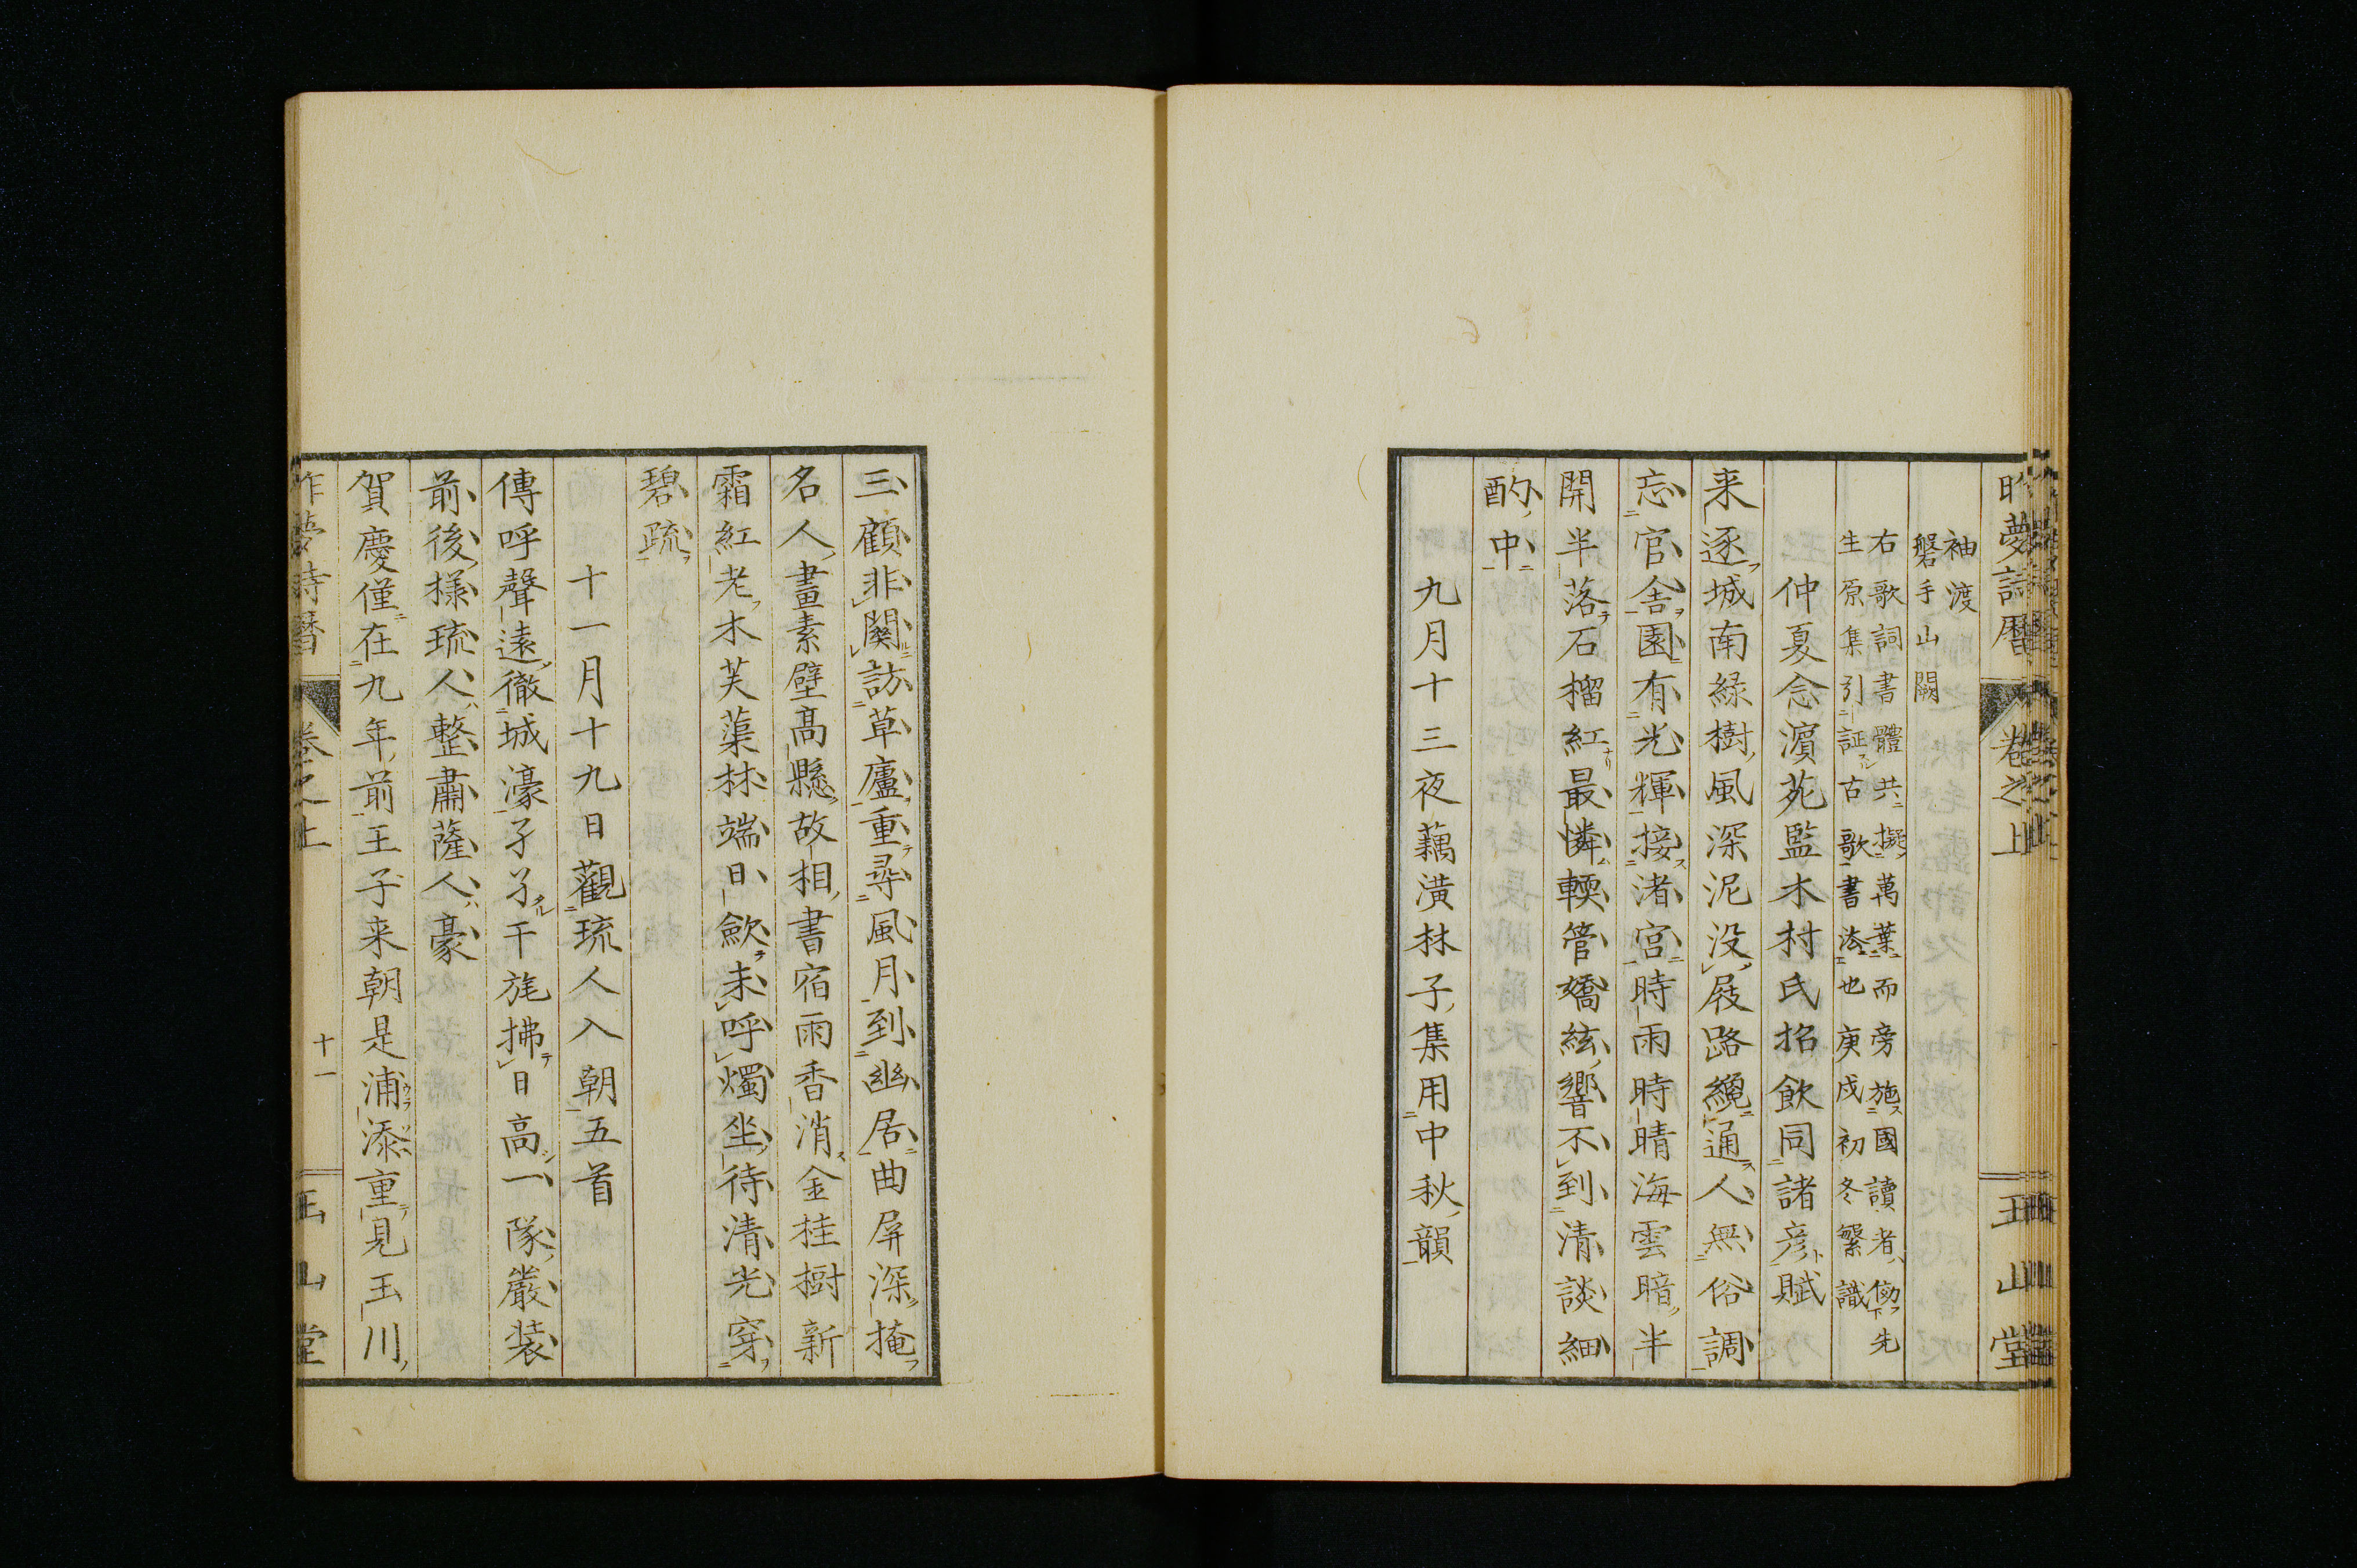 昨夢詩暦　卷之上　玉山堂
袖渡
磐手山闕
右歌詞書體共擬萬葉而旁施國讀者傚先
生原集引証古歌書法也庚戌初冬繁識
仲夏念濵苑監木村氏招飲同諸彦賦
来逐城南綠樹風深泥没屐路纔通人無俗調
忘官舎園有光輝接渚宮時雨時晴海雲暗半
開半落石榴紅最憐輭管嬌絃響不到清談細
酌中
九月十三夜藕潢林子集用中秋韻
三顧非關訪草廬重尋風月到幽居曲屏深掩
名人畫素壁高懸故相書宿雨香消金桂樹新
霜紅老木芙蕖林端日歛未呼燭坐待清光穿
碧疏
十一月十九日觀琉人入朝五首
傳呼聲遠徹城濠孑孑干旄拂日高一隊嚴装
前後様琉人整肅薩人豪
賀慶僅在九年前王子来朝是浦添重見玉川
昨夢詩暦　卷之上　十一　玉山堂